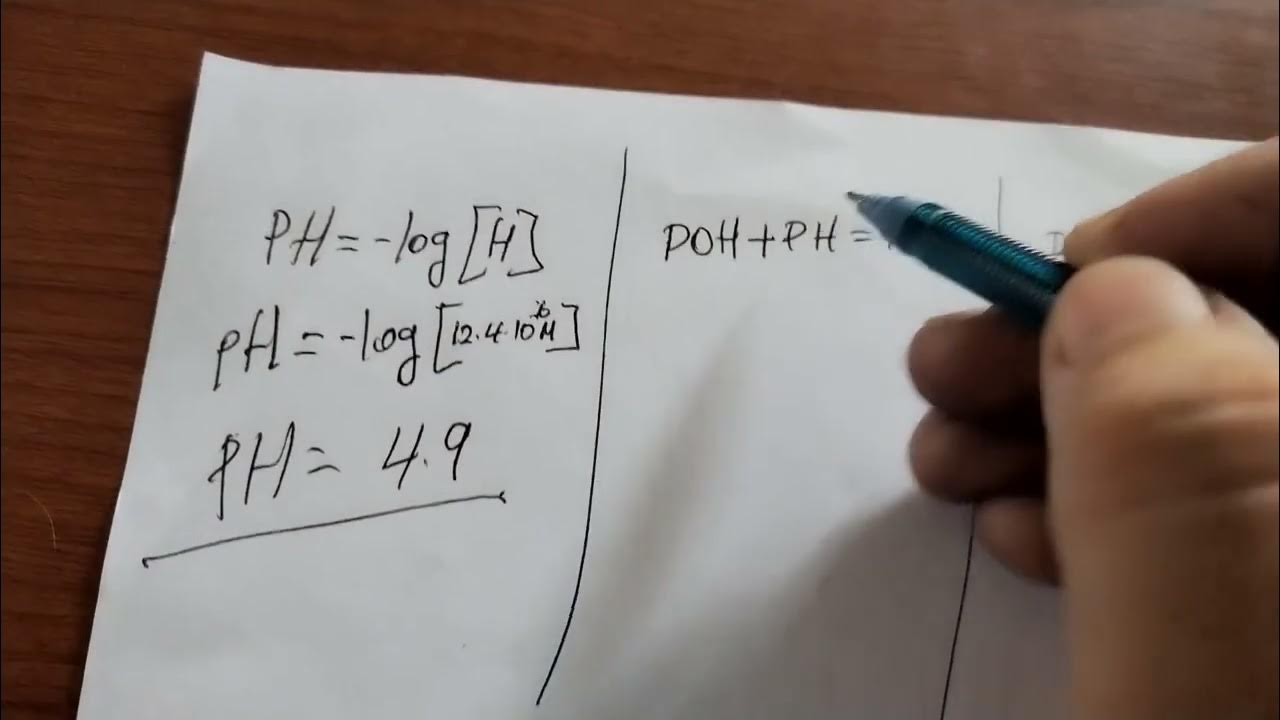 PH = -log [H]
pH = -log [12.4.10⁻⁶M]
PH = 4.9
POH + PH =